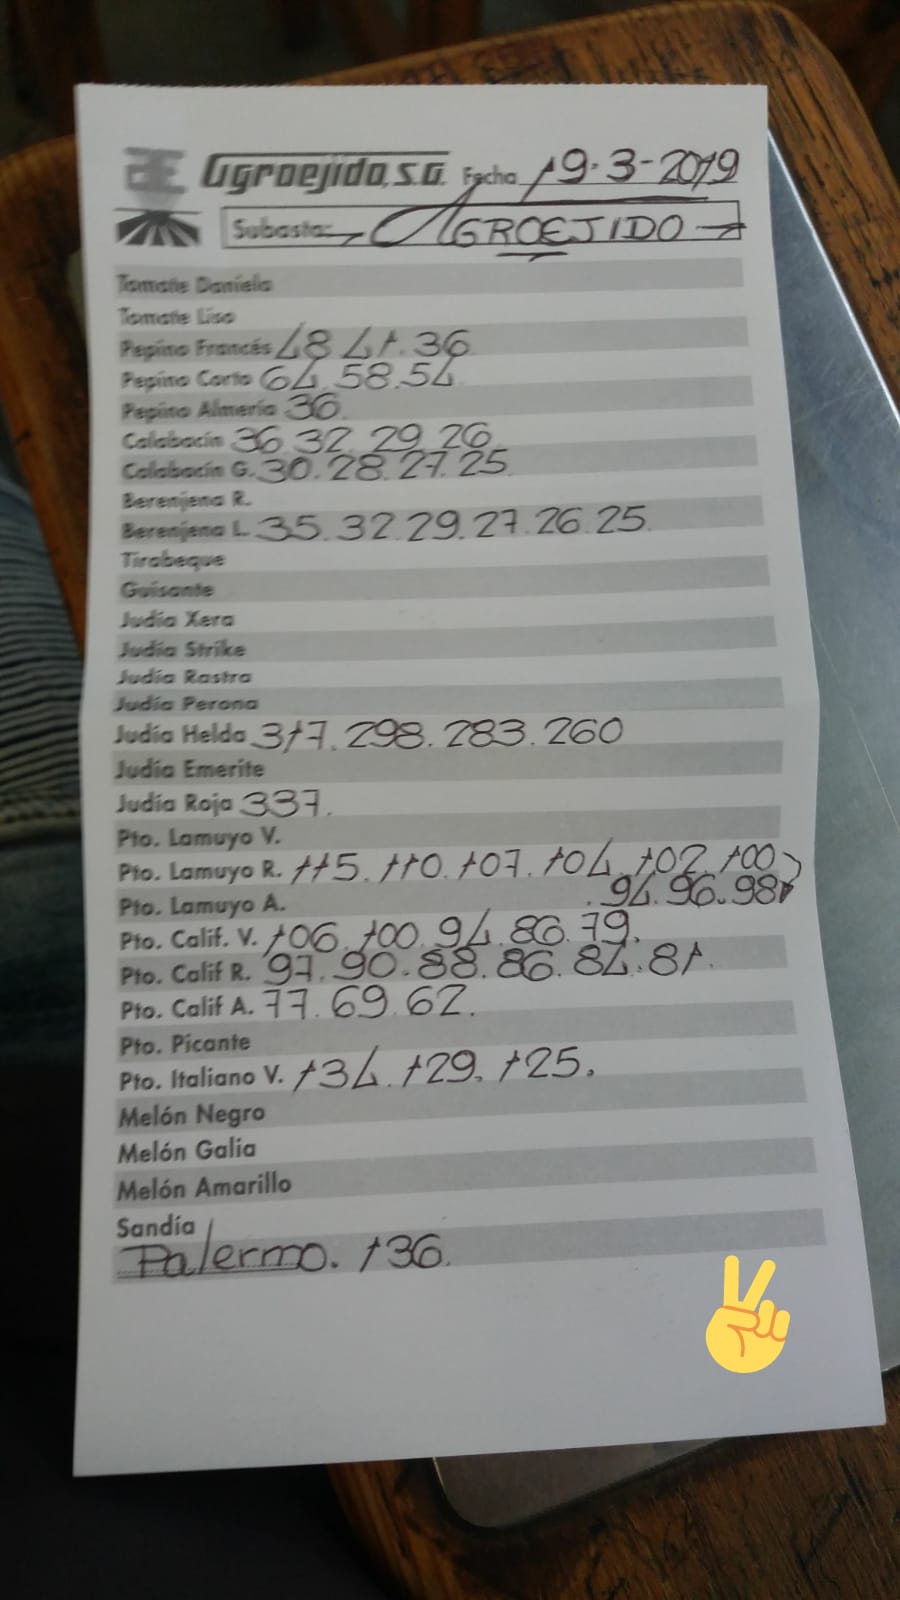 Agroejido, S.A. Fecha 19-3-2019
Subasta: AGROEJIDO
Tomate Daniela
Tomate Liso
Pepino Francés 48 41.36
Pepino Corto 64.58.54
Pepino Almería 36.
Calabacín 36.32.29.26
Calabacín G. 30.28.27.25
Berenjena R.
Berenjena L. 35.32.29.27.26.25.
Tirabeque
Guisante
Judía Xera
Judía Strike
Judía Rastra
Judía Perona
Judía Helda 317.298.283.260
Judía Emerite
Judía Roja 337.
Pto. Lamuyo V.
Pto. Lamuyo R. 115.110.107.104.102.100
.94.96.98
Pto. Lamuyo A.
Pto. Calif. V. 106.100.94.86.79.
Pto. Calif R. 97.90.88.86.84.81.
Pto. Calif A. 77.69.62.
Pto. Picante
Pto. Italiano V. 134.129.125.
Melón Negro
Melón Galia
Melón Amarillo
Sandía
Palermo. 136.